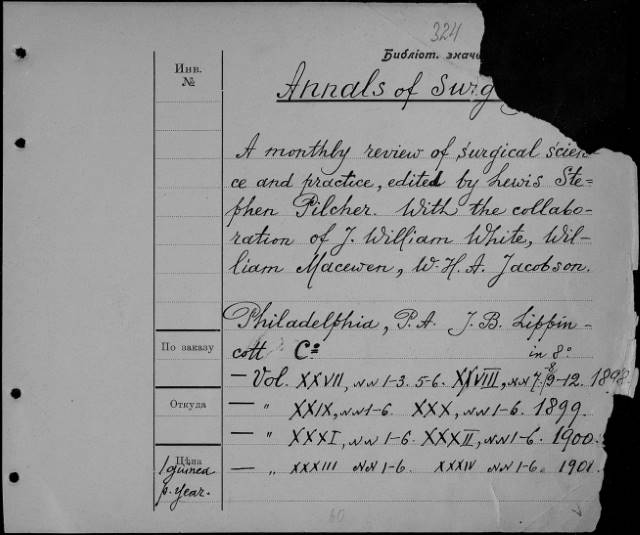 324
Библіот. знач
Инв.
№
Annals of Surg
A monthly review of surgical scien-
ce and practice, edited by Lewis Ste-
phen Pilcher. With the collabo-
ration of J. William White, Wil-
liam Macewen, W. H. A. Jacobson.
Philadelphia, P.A. J. B. Lippin-
По заказу
cott Co in 8o
— Vol. XXVII, NN 1-3. 5-6. XXVIII, NN 7. 9-12. 1898.
Откуда
— " XXIX, NN 1-6. XXX, NN 1-6. 1899.
— " XXXI, NN 1-6. XXXII, NN 1-6. 1900.
Цѣна
— " XXXIII NN 1-6. XXXIV NN 1-6. 1901.
1 guinea
p. year.
60